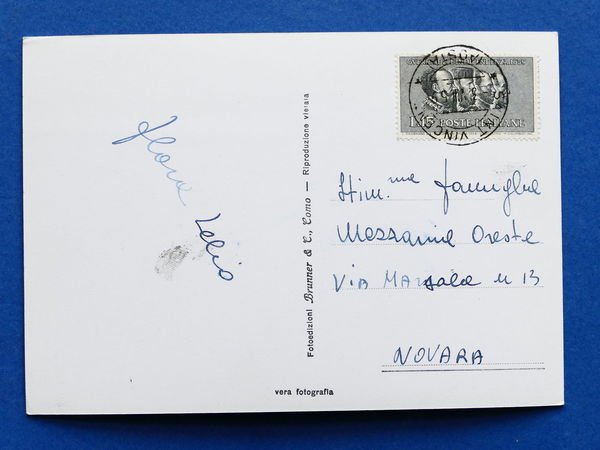 L.15 POSTE ITALIANE
Flora
Lelio
Fotoedizioni Brunner & C., Como — Riproduzione vietata
Stim.me Famiglia
Mezzanie Oreste
Via Marsala n 13
NOVARA
vera fotografia